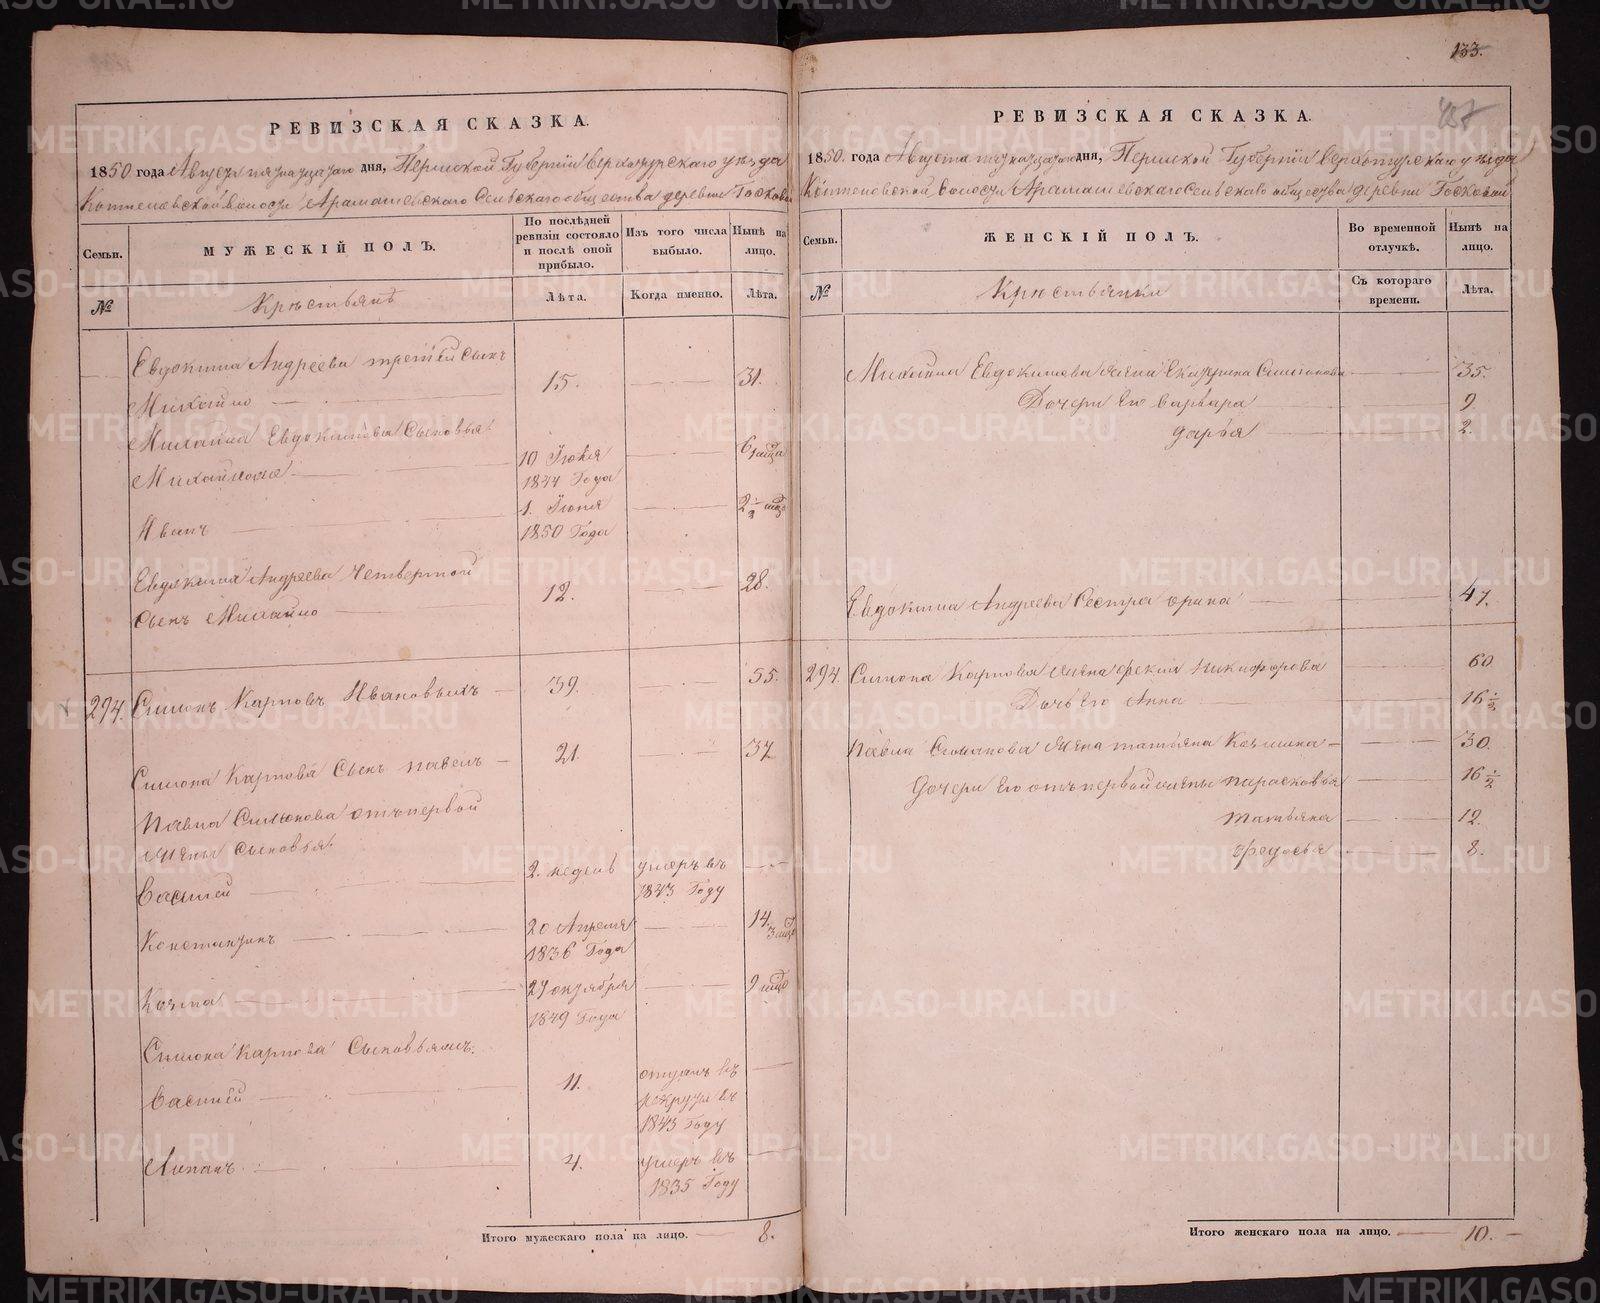 РЕВИЗСКАЯ СКАЗКА.
1850 года Августа дня, Пермской Губернiи Верхотурскаго уѣзда
волости Арамашевскаго Сельскаго общества деревни
Семьи.
МУЖЕСКIЙ ПОЛЪ.
По послѣдней ревизiи состояло и послѣ оной прибыло.
Изъ того числа выбыло.
Нынѣ на лицо.
№
Крѣстьянѣ
Лѣта.
Когда именно.
Лѣта.
Евдокима Андреева третей Сынъ
Михайло 15. 31.
Михайла Евдокимова Сыновья:
Михайло 10 Iюня 1844 Года 6
Иванъ 1. Iюня 1850 Года 2 1/2 мсца
Евдокима Андреева четвертой
Сынъ Михайло 12. 28.
294. Симонъ Карповъ Ивановыхъ 39. 55.
Симона Карпова Сынъ Павелъ 21. 37
Павла Симонова отъ первой
жены Сыновья:
Василей 2. недель умеръ въ 1843 Году
Константинъ 20 Апреля 1836 Года 14. 3 мсца
Козма 29 октября 1849 Года 9 мсцо
Симона Карпова Сыновьямъ.
Василей 11. отданъ въ рекруты въ 1843 Году
4. умеръ въ 1835 Году
Итого мужескаго пола на лицо. 8.
133.
РЕВИЗСКАЯ СКАЗКА.
1850. года Августа дня, Пермской Губернiи Верхотурскаго уѣзда
волости Арамашевскаго Сельскаго общества деревни
Семьи.
ЖЕНСКIЙ ПОЛЪ.
Во временной отлучкѣ.
Нынѣ на лицо.
№
Крѣстьянки
Съ котораго времени.
Лѣта.
Михайла Евдокимова жена Екатерина Симонова 35.
Дочери Его Варвара 9
Дарья 2.
Евдокима Андреева Сестра Орина 47.
294. Симона Карпова жена Никифорова 60
Дочь Его Анна 16 1/2
Павла Симонова жена татьяна Козмина 30.
Дочери Его отъ первой жены парасковья 16 1/2
татьяна 12.
федосья 8.
Итого женскаго пола на лицо. 10.
METRIKI.GASO-URAL.RU